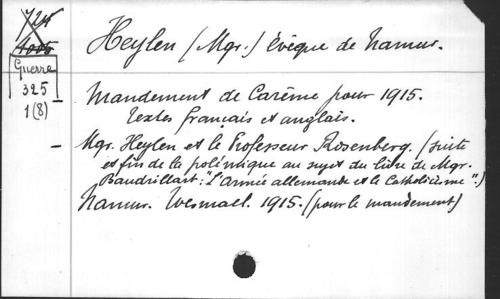 Guerre
325
1(8)
Heylen (Mgr.) Evêque de Namur.
Mandement de Carême pour 1915.
Textes français et anglais.
Mgr. Heylen et le Professeur Rosenberg. (suite
et fin de la polémique au sujet du livre de Mgr.
Baudrillart: "L'Armée allemande et le Catholicisme".)
Namur. Wesmael. 1915. (pour le mandement)